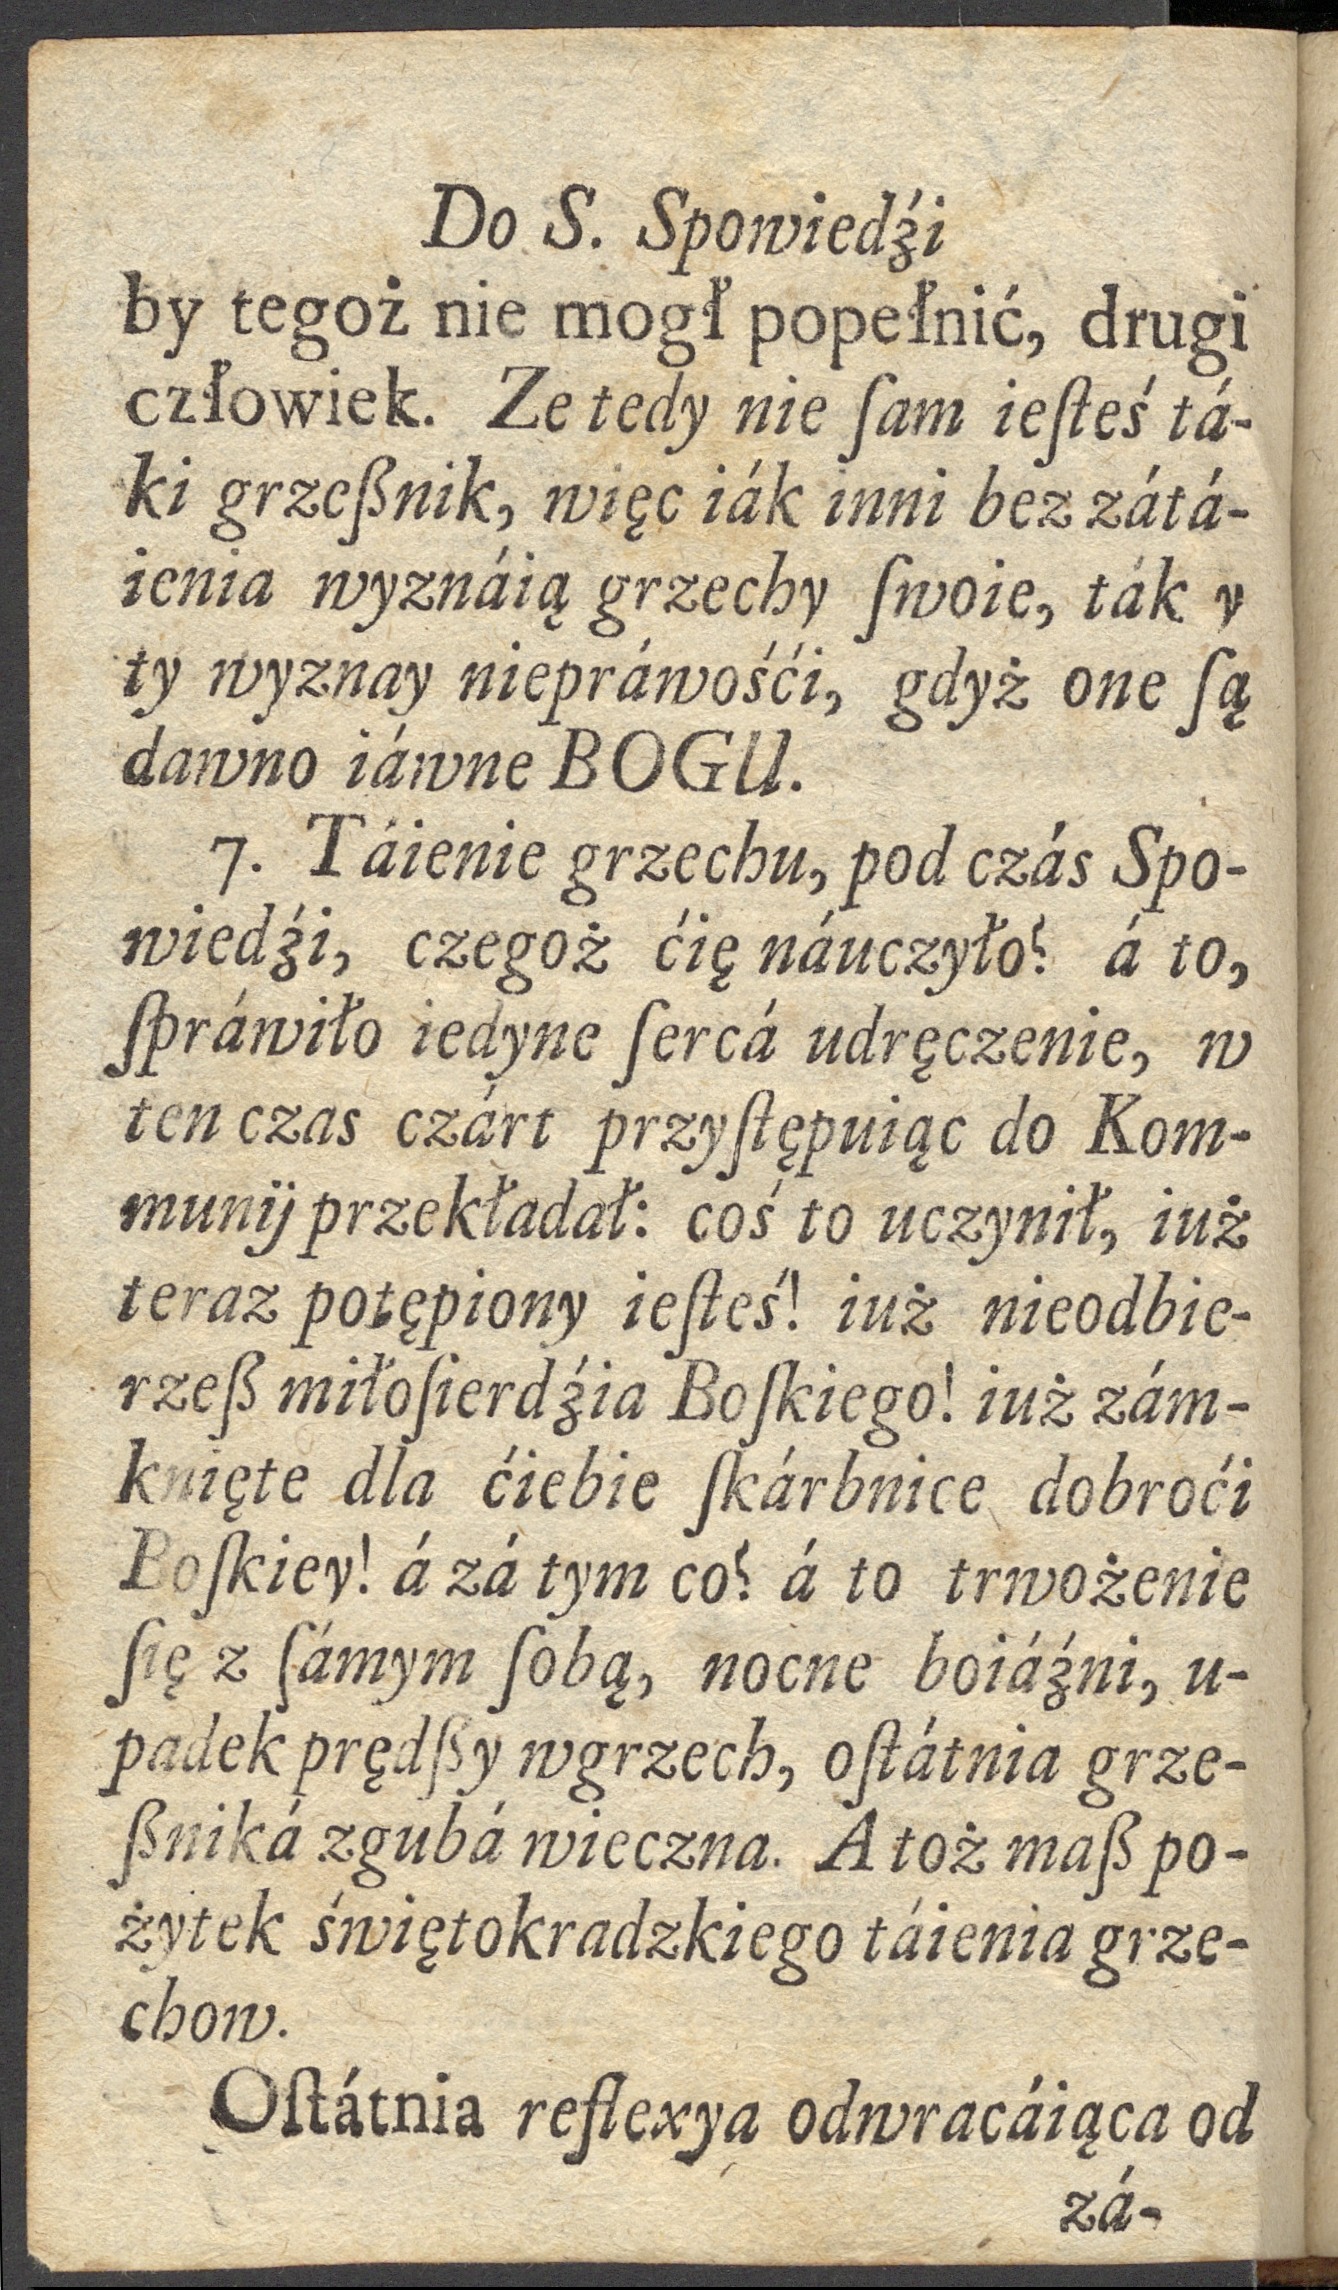 Do S. Spowiedźi
by tegoż nie mogł popełnić, drugi
człowiek. Ze tedy nie ſam ieſteś tá-
ki grzeßnik, więc iák inni bez zátá-
ienia wyznáią grzechy ſwoie, ták y
ty wyznay niepráwośći, gdyż one ſą
dawno iáwne BOGU.
7. Táienie grzechu, pod czás Spo-
wiedźi, czegoż ćię náuczyło? á to,
ſpráwiło iedyne ſercá udręczenie, w
ten czas czárt przyſtępuiąc do Kom-
munij przekładał: coś to uczynił, iuż
teraz potępiony ieſteś! iuż nieodbie-
rzeß miłoſierdźia Boſkiego! iuż zám-
knięte dla ćiebie ſkárbnice dobroći
Boſkiey! á zá tym co? á to trwożenie
ſię z ſámym ſobą, nocne boiáźni, u-
padek prędßy wgrzech, oſtátnia grze-
ßniká zgubá wieczna. A toż maß po-
żytek świętokradzkiego táienia grze-
chow.
Oſtátnia reflexya odwracáiąca od
zá-